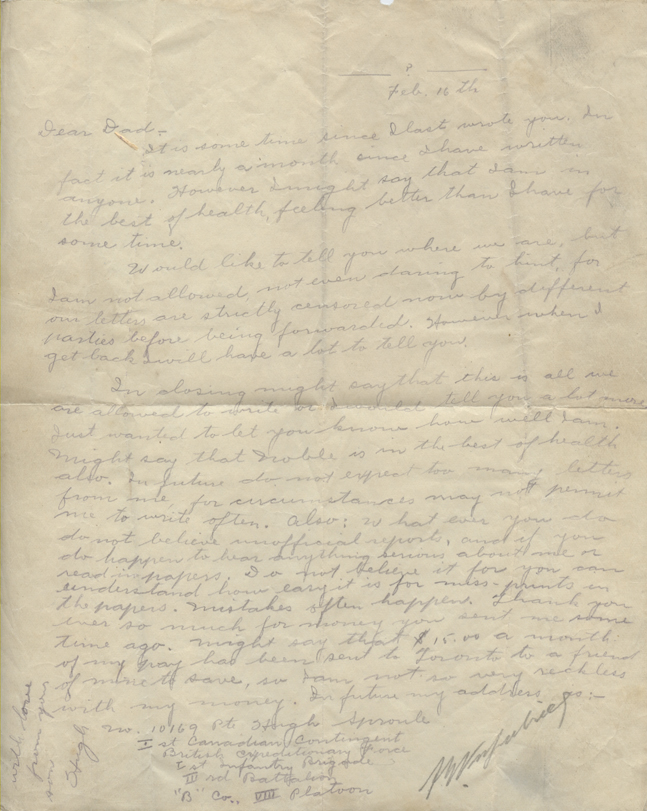 ?
Feb. 16 th
Dear Dad:-
It is some time since I last wrote you. In
fact it is nearly a month since I have written
anyone. However I might say that I am in
the best of health, feeling better than I have for
some time.
Would like to tell you where we are, but
I am not allowed, not even daring to hint, for
our letters are strictly censored now by different
parties before being forwarded. However when I
get back I will have a lot to tell you.
In closing might say that this is all we
are allowed to write or I would tell you a lot more
Just wanted to let you know how well I am.
Might say that Noble is in the best of health
also. In future do not expect too many letters
from me, for circumstances may not permit
me to write often. Also: What ever you do
do not believe unofficial reports, and if you
do happen to hear anything serious about me or
read in papers. Do not believe it for you can
understand how easy it is for miss-prints in
the papers. Mistakes often happen. Thank you
ever so much for money you sent me some
time ago. Might say that $15.00 a month
of my pay has been sent to Toronto to a friend
of mine to save, so I am not so very reckless
with my money. In future my address is:-
No. 10169 Pt Hugh Sproule
Ist Canadian Contingent
British Expeditionary Force
Ist Infantry Brigade
III rd Battalion
"B" Co., VIII Platoon
with love
from your
son
Hugh